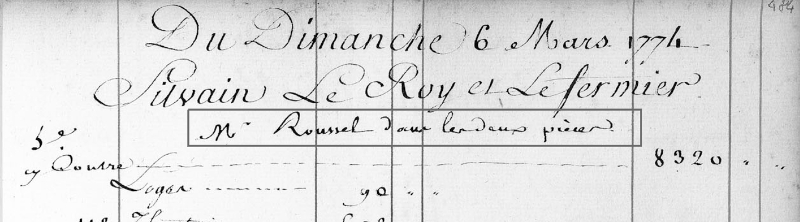 484
Du Dimanche 6 Mars 1774
Silvain Le Roy et Le fermier
Mr Roussel dans les deux pièces
5e
cy Contre 8320 " "
Loges 90 " "